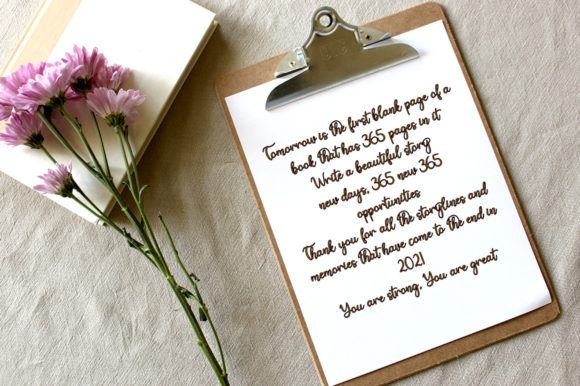 Tomorrow is the first blank page of a
book that has 365 pages in it
Write a beautiful story
new days, 365 new 365
opportunities
Thank you for all the storylines and
memories that have come to the end in
2021
You are strong, You are great